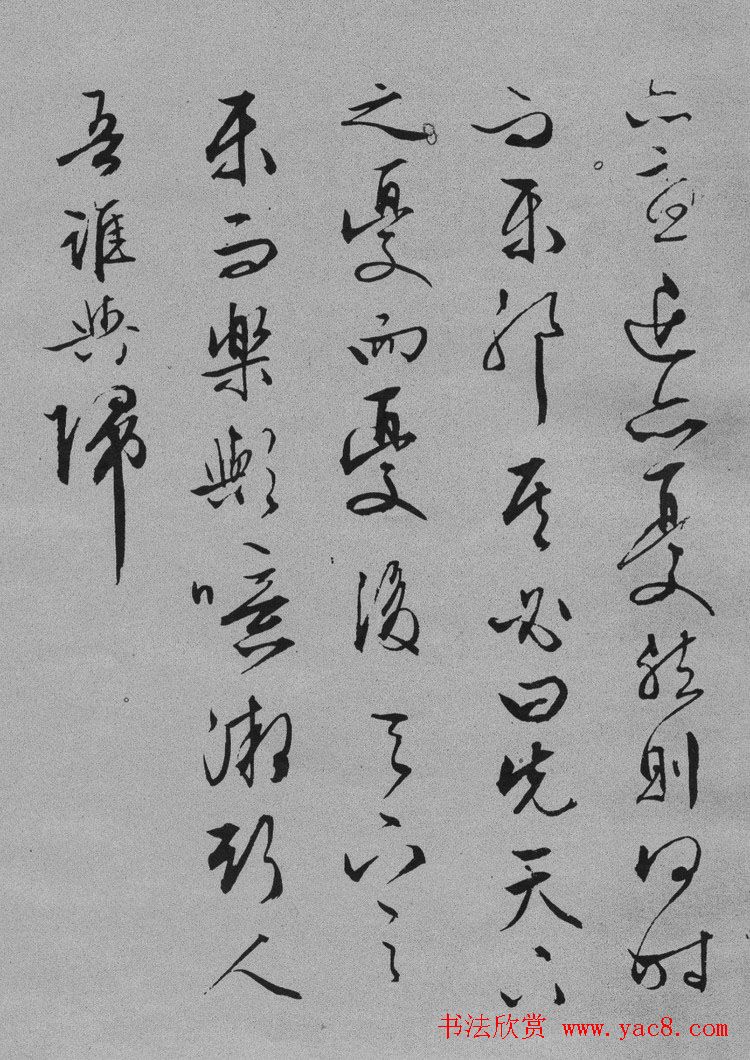 亦憂退亦憂然則何時
而樂耶其必曰先天下
之憂而憂後天下之
樂而樂歟噫微斯人
吾誰與歸
书法欣赏 www.yac8.com